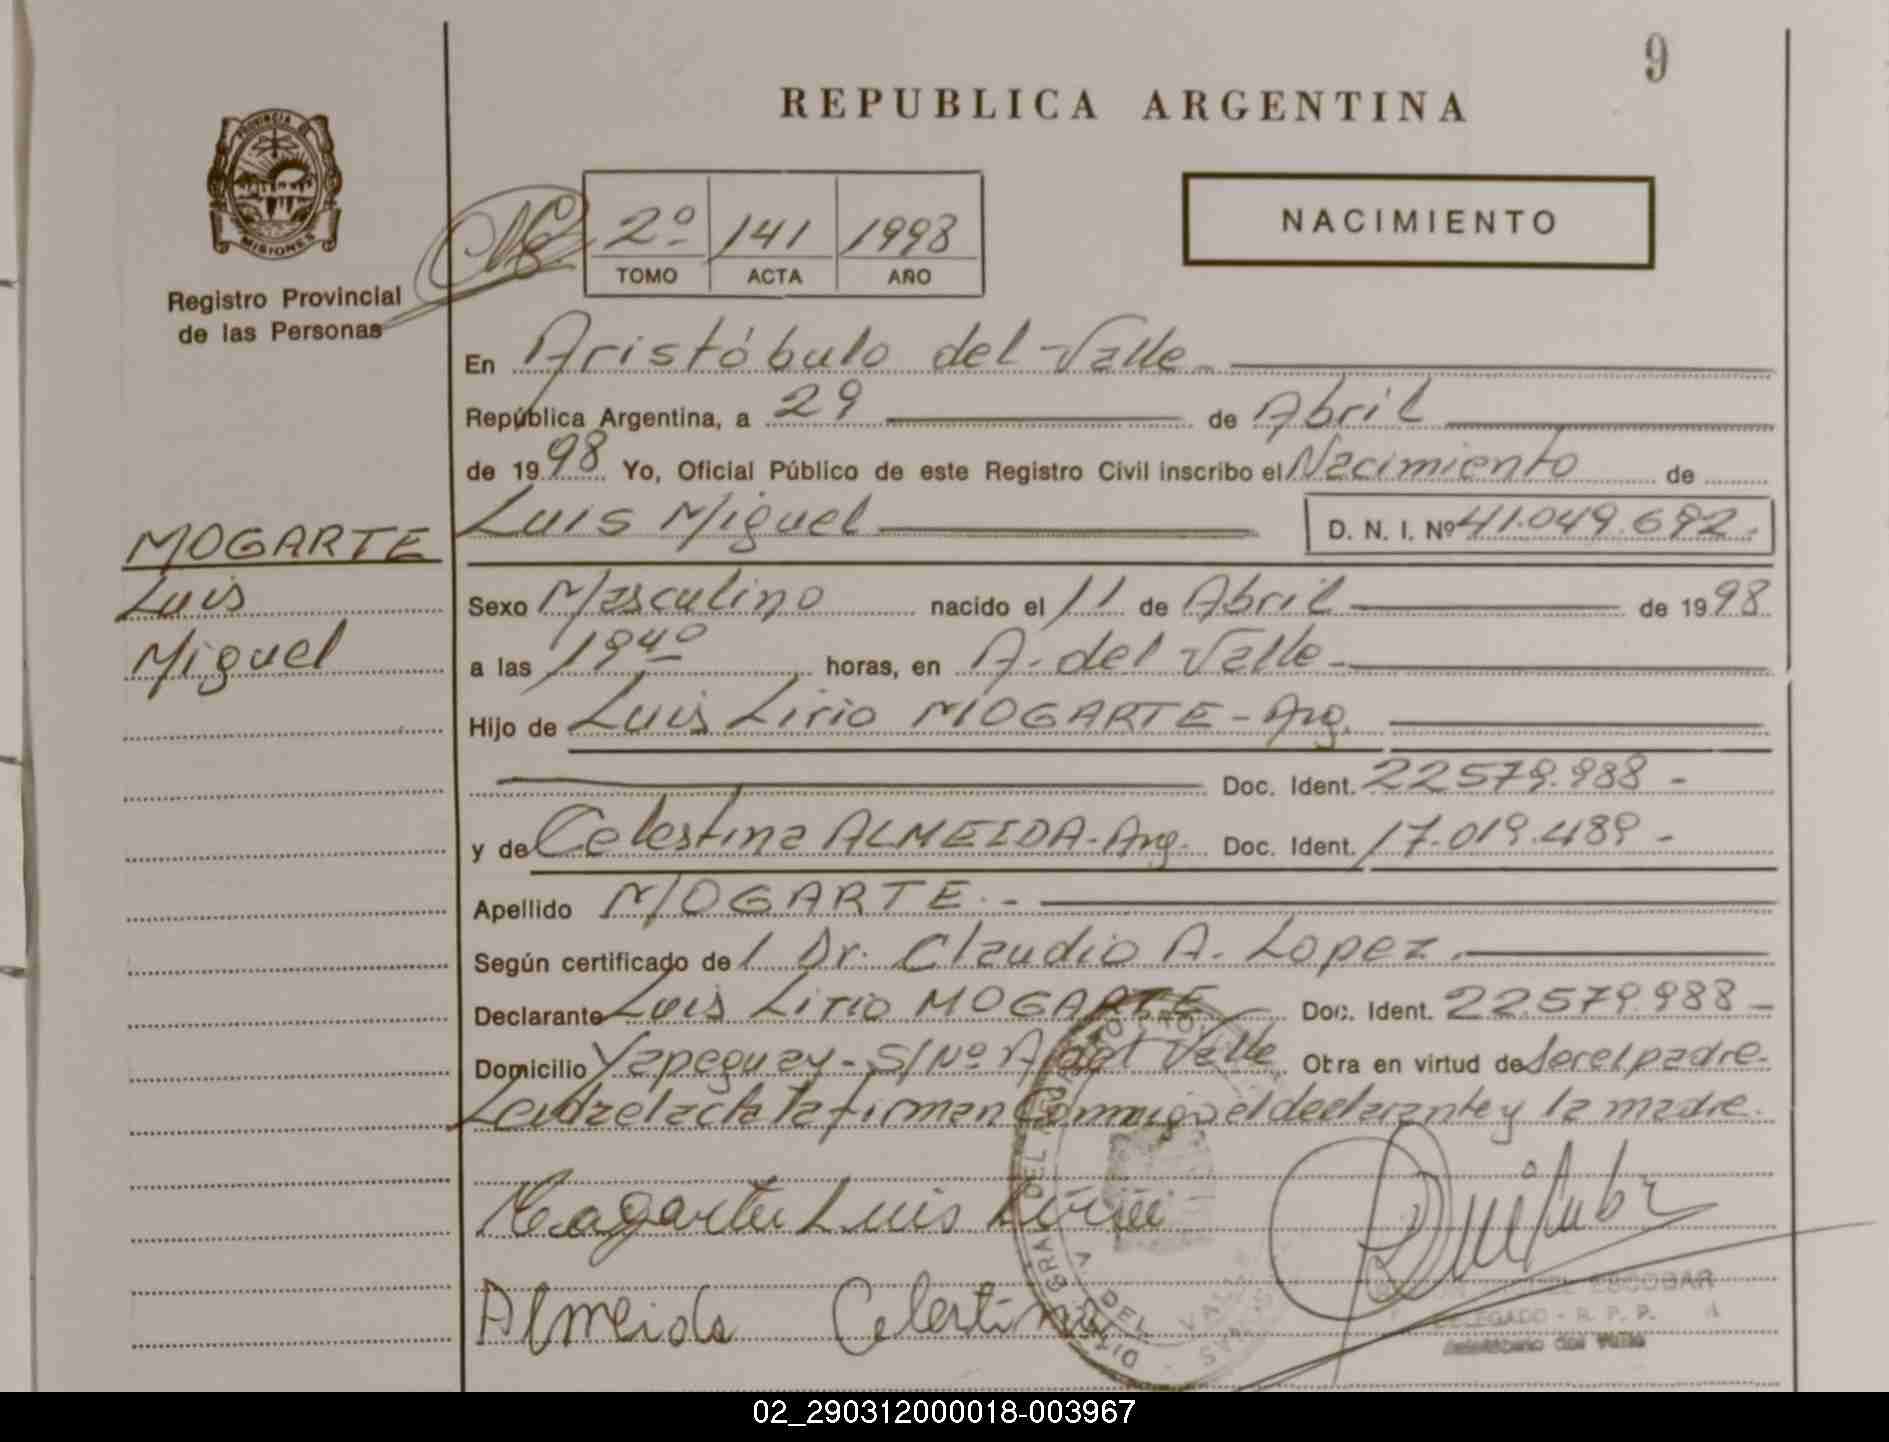 9
REPUBLICA ARGENTINA
PROVINCIA DE
MISIONES
Registro Provincial
de las Personas
2º 141 1998
TOMO ACTA AÑO
NACIMIENTO
En Aristóbulo del Valle
República Argentina, a 29 de Abril
de 1998 Yo, Oficial Público de este Registro Civil inscribo el Nacimiento de
Luis Miguel D. N. I. Nº 41.049.692.
MOGARTE
Luis
Miguel
Sexo Masculino nacido el 11 de Abril de 1998
a las 1940 horas, en A. del Valle
Hijo de Luis Lirio MOGARTE - Arg.
Doc. Ident. 22579.988 -
y de Celestina ALMEIDA - Arg. Doc. Ident. 17.019.489 -
Apellido MOGARTE. -
Según certificado de l Dr. Claudio A. Lopez.
Declarante Luis Lirio MOGARTE Doc. Ident. 22.579.988 -
Domicilio Yapeguay - S/Nº A. del Valle Otra en virtud de ser el padre.
Leida el acta la firman Conmigo el declarante y la madre.
Luis
Almeida Celestina
ESCOBAR
DELEGADO - R. P. P.
Aristóbulo del Valle
02_290312000018-003967